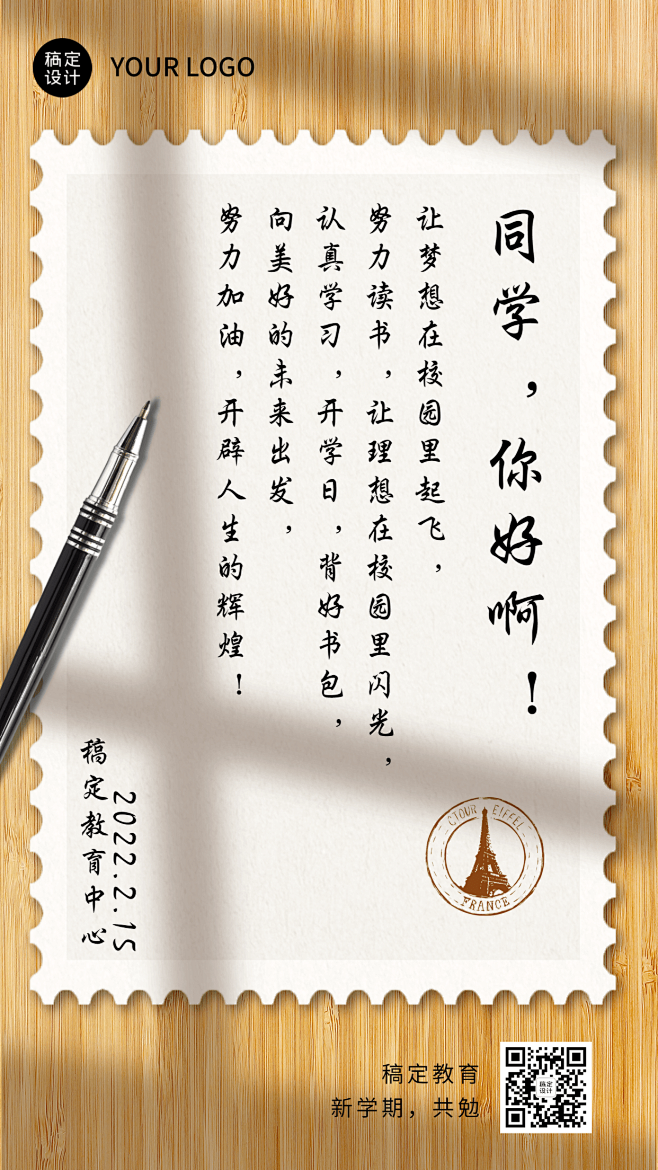 稿定
设计
YOUR LOGO
同学，你好啊！
让梦想在校园里起飞，
努力读书，让理想在校园里闪光，
认真学习，开学日，背好书包，
向美好的未来出发，
努力加油，开辟人生的辉煌！
2022.2.15
稿定教育中心
CTOUR EIFFEL
FRANCE
稿定教育
新学期，共勉
稿定
设计